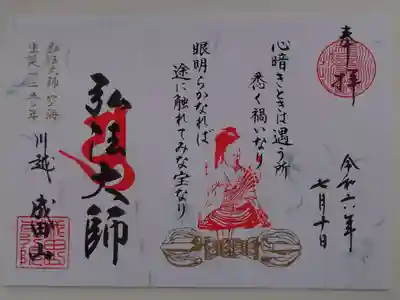 奉拝
令和六年
七月十日
心暗きときは遇う所
悉く禍いなり
眼明らかなれば
途に触れてみな宝なり
弘法大師
弘法大師 空海
川越 成田山